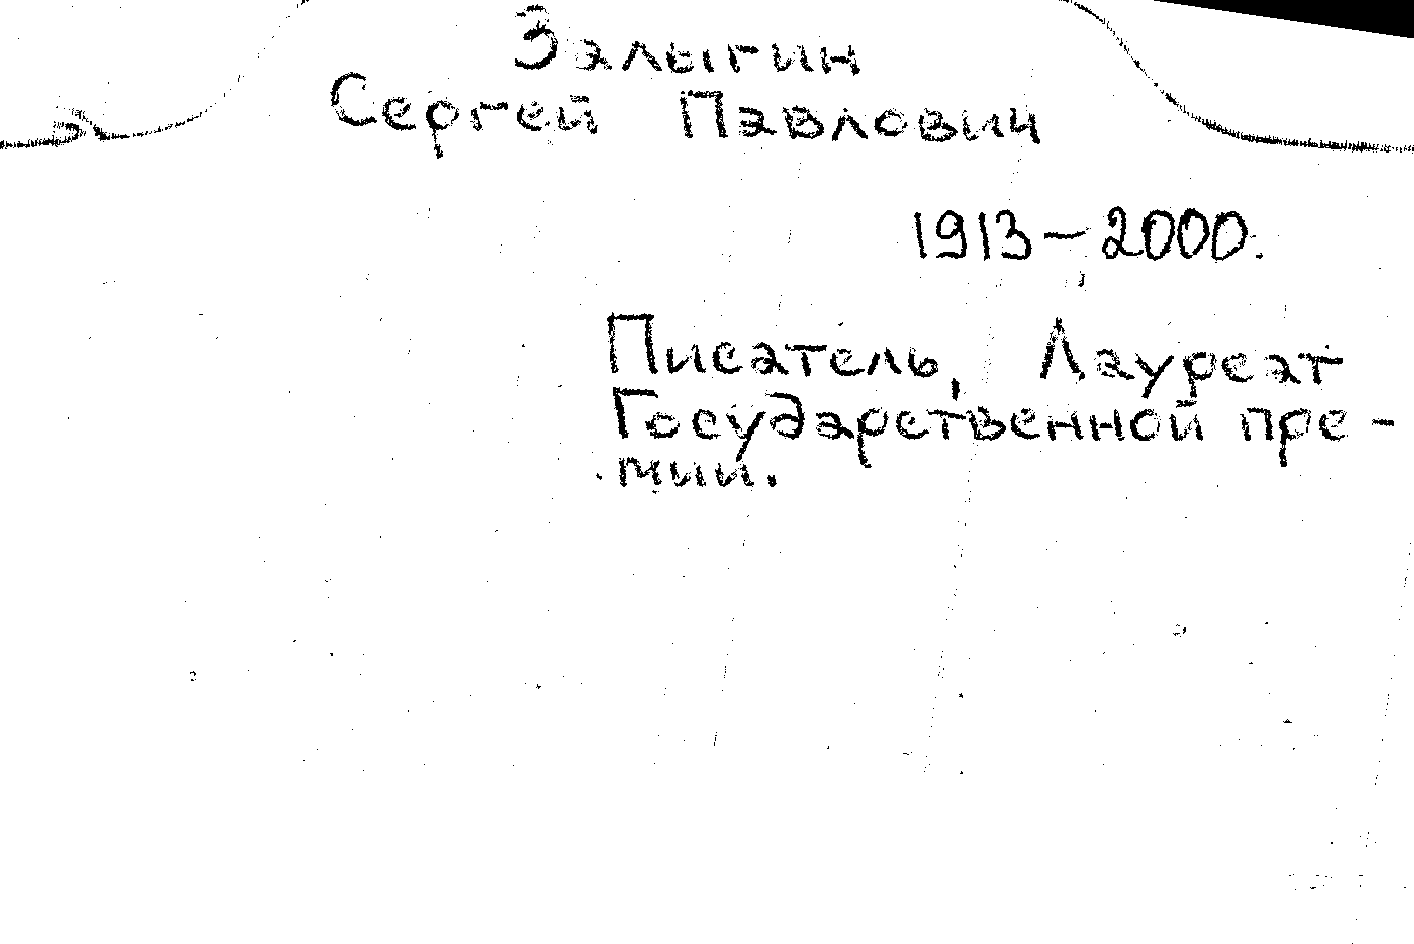 Залыгин
Сергей Павлович
1913-2000.
Писатель, Лауреат
Государственной пре-
мии.